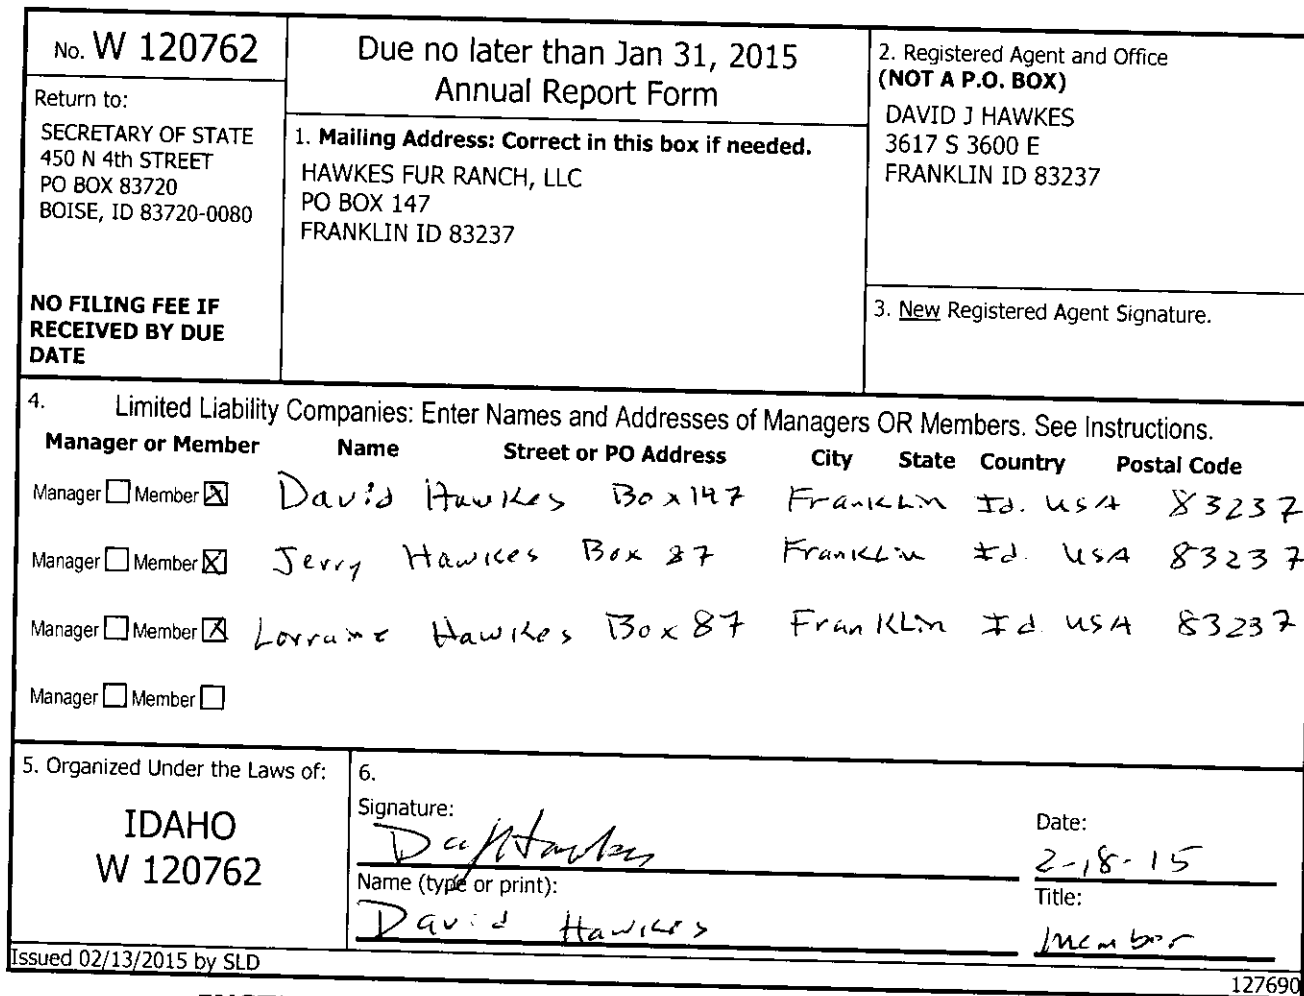 No. W 120762
Return to:
SECRETARY OF STATE
450 N 4th STREET
PO BOX 83720
BOISE, ID 83720-0080
NO FILING FEE IF
RECEIVED BY DUE
DATE
Due no later than Jan 31, 2015
Annual Report Form
1. Mailing Address: Correct in this box if needed.
HAWKES FUR RANCH, LLC
PO BOX 147
FRANKLIN ID 83237
2. Registered Agent and Office
(NOT A P.O. BOX)
DAVID J HAWKES
3617 S 3600 E
FRANKLIN ID 83237
3. New Registered Agent Signature.
4. Limited Liability Companies: Enter Names and Addresses of Managers OR Members. See Instructions.
Manager or Member Name Street or PO Address City State Country Postal Code
Manager ☐ Member ☒ David Hawkes Box 147 Franklin Id. USA 83237
Manager ☐ Member ☒ Jerry Hawkes Box 87 Franklin Id. USA 83237
Manager ☐ Member ☒ Lorraine Hawkes Box 87 Franklin Id. USA 83237
Manager ☐ Member ☐
5. Organized Under the Laws of:
IDAHO
W 120762
6.
Signature:
Date:
2-18-15
Name (type or print):
David Hawkes
Title:
member
Issued 02/13/2015 by SLD
127690